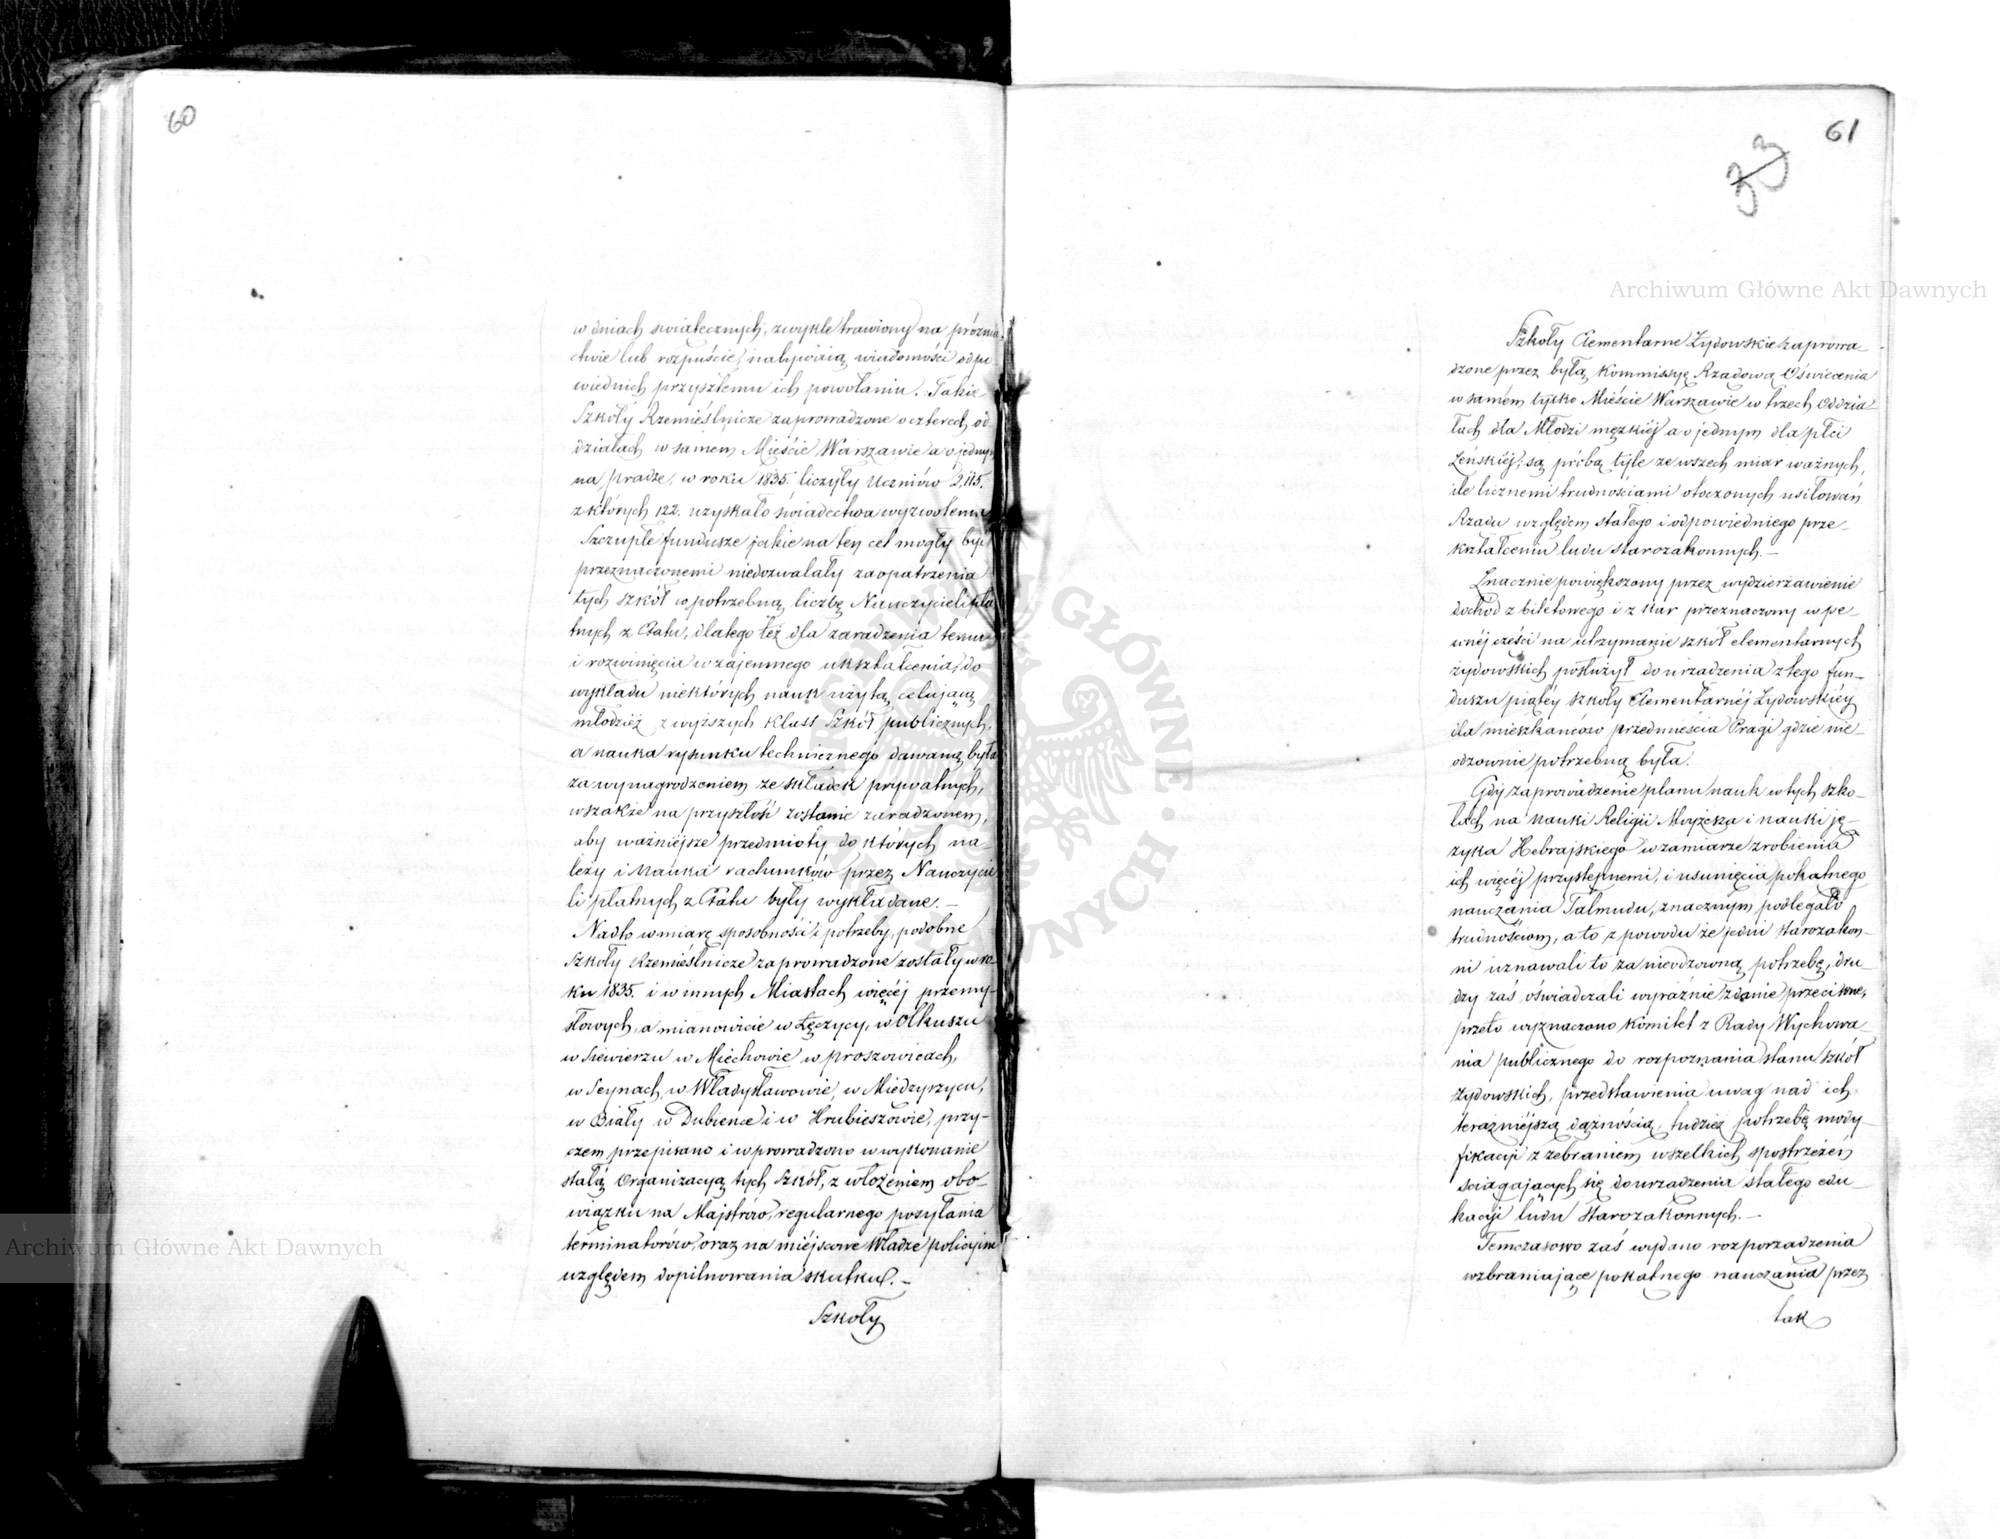 60
w dniach swiątecznych, zwykle trawiony na próżnia-
ctwie lub rozpuście, nabywają wiadomości odpo
wiednich przyszłemu ich powołaniu. Takie
Szkoły Rzemieślnicze zaprowadzone o czterech od
działach w samem Mieście Warszawie a o jednym
na Pradze, w roku 1835. liczyły Uczniów 2,115.
z których 122. uzyskało świadectwa wyzwolenia
Szczupłe fundusze jakie na ten cel mogły być
przeznaczonemi niedozwalały zaopatrzenia
tych szkół w potrzebną liczbę Nauczycieli pła
tnych z Etatu, dlatego też dla zaradzenia temu
i rozwinięcia wzajemnego ukształcenia, do
wykładu niektórych nauk użytą celującą
młodzież z wyższych klass Szkół publicznych,
a nauka rysunku technicznego dawaną była
za wynagrodzeniem ze składek prywatnych,
wszakże na przyszłość zostanie zaradzonem,
aby ważniejsze przedmioty, do których na-
leży i Nauka rachunków przez Nauczycie
li płatnych z Etatu były wykładane. –
Nadto w miarę sposobności i potrzeby, podobne
Szkoły Rzemieślnicze zaprowadzone zostały w ro
ku 1835. i w innych Miastach więcéj przemy-
słowych, a mianowicie w Łęczycy, w Olkuszu
w Siewierzu w Miechowie w Proszowicach,
w Seynach, w Władysławowie, w Międzyrzycu,
w Biały w Dubience i w Hrubieszowie, przy-
czem przepisano i wprowadzono w wykonanie
stałą Organizacyą tych Szkół, z włożeniem obo-
wiązku na Majstrów, regularnego posyłania
terminatorów, oraz na miejscowe Władze policyjne
względem dopilnowania skutku. –
Szkoły
61
33
Szkoły Elementarne Żydowskie zaprowa-
dzone przez byłą Kommissyę Rządową Oświecenia
w samém tylko Mieście Warszawie w trzech Oddzia-
łach dla Młodzi męzkiéj a o jednym dla płci
żeńskiéj, są próbą tyle ze wszech miar ważnych,
ile licznemi trudnościami otoczonych usiłowań
Rządu względem stałego i odpowiedniego prze-
kształceniu ludu starozakonnych. –
Znacznie powiększony przez wydzierzawienie
dochód z biletowego i z kar przeznaczony w pe-
wnéj części na utrzymanie szkół elementarnych
żydowskich posłużył do urządzenia z tego fun-
duszu piątéy szkoły Elementarnéj Żydowskiéy
dla mieszkańców przedmieścia Pragi gdzie nie-
odzownie potrzebną była.
Gdy zaprowadzenie planu nauk w tych szko-
łach na nauki Religii Moyżesza i nauki ję-
zyka Hebrajskiego w zamiarze zrobienia
ich więcéj przystępnemi, i usunięcia pokątnego
nauczania Talmudu, znacznym podlegało
trudnościom, a to z powodu że jedni starozakon-
ni uznawali to za nieodzowną potrzebę, dru-
dzy zaś oświadczali wyraźnie zdanie przeciwne,
przeto wyznaczono Komitet z Rady Wychowa-
nia publicznego do rozpoznania stanu szkół
żydowskich, przedstawienia uwag nad ich
teraźniejszą dążnością, tudzież potrzebę mody-
fikacji z zebraniem wszelkich spostrzeżeń
ściągających się do urządzenia stałego edu-
kacji ludu starozakonnych. –
Temczasowo zaś wydano rozporządzenia
wzbraniające pokątnego nauczania przez
tak
Archiwum Główne Akt Dawnych
Archiwum Główne Akt Dawnych